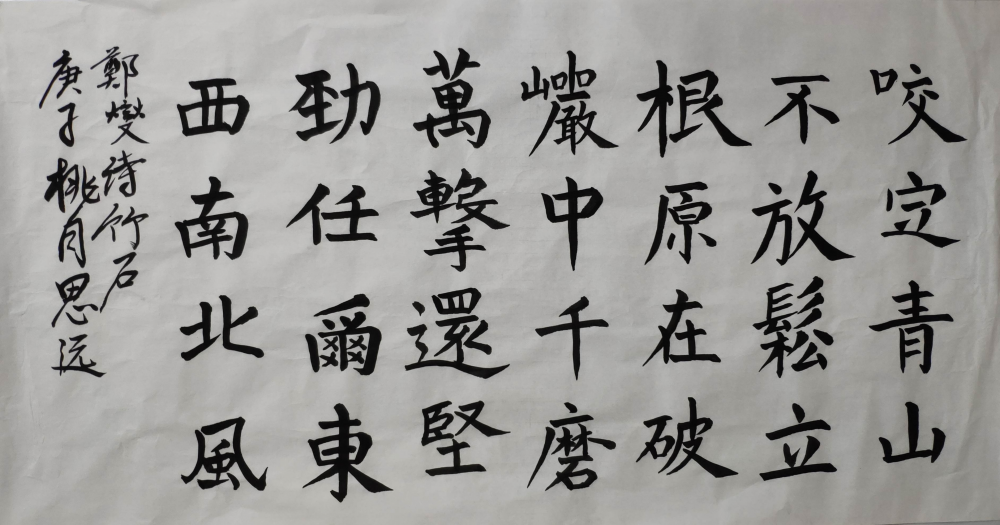 咬定青山
不放鬆立
根原在破
巖中千磨
萬擊還堅
勁任爾東
西南北風
鄭燮诗竹石
庚子桃月思远